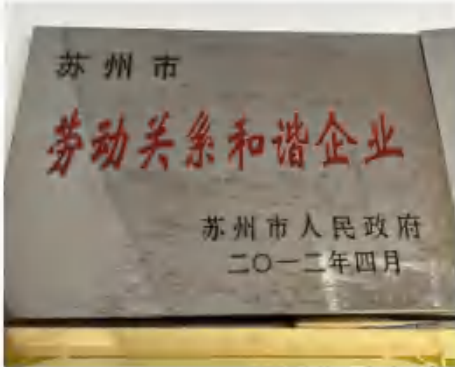 苏州市
劳动关系和谐企业
苏州市人民政府
二〇一二年四月